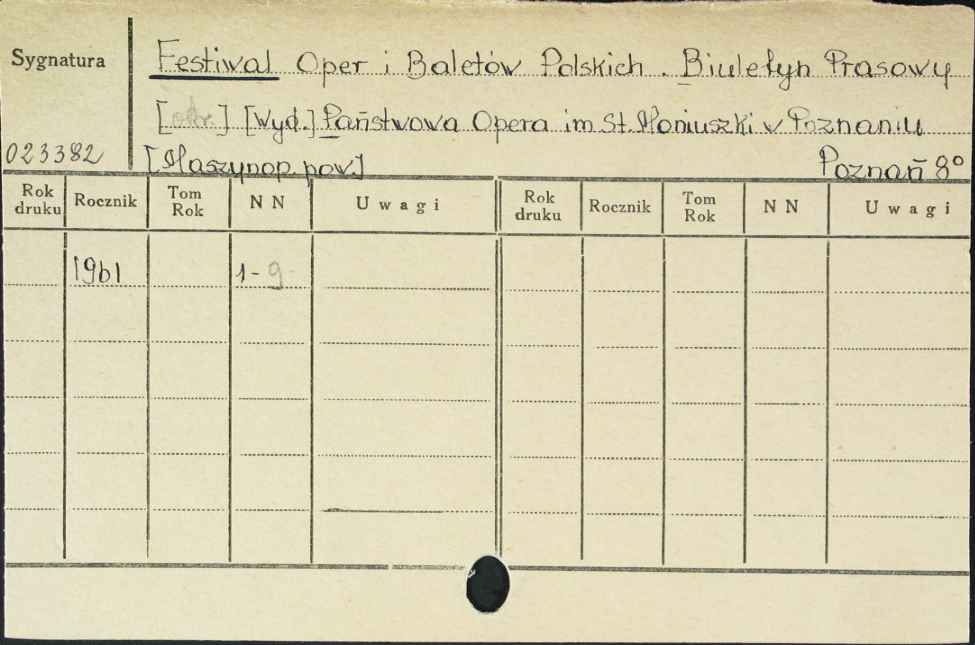 Sygnatura
Festiwal Oper i Baletów Polskich. Biuletyn Prasowy
[] [Wyd.] Państwowa Opera im St. Moniuszki w Poznaniu
023382 [Maszynop. pow.] Poznań 8°
Rok druku Rocznik Tom Rok NN Uwagi Rok druku Rocznik Tom Rok NN Uwagi
1961 1-9